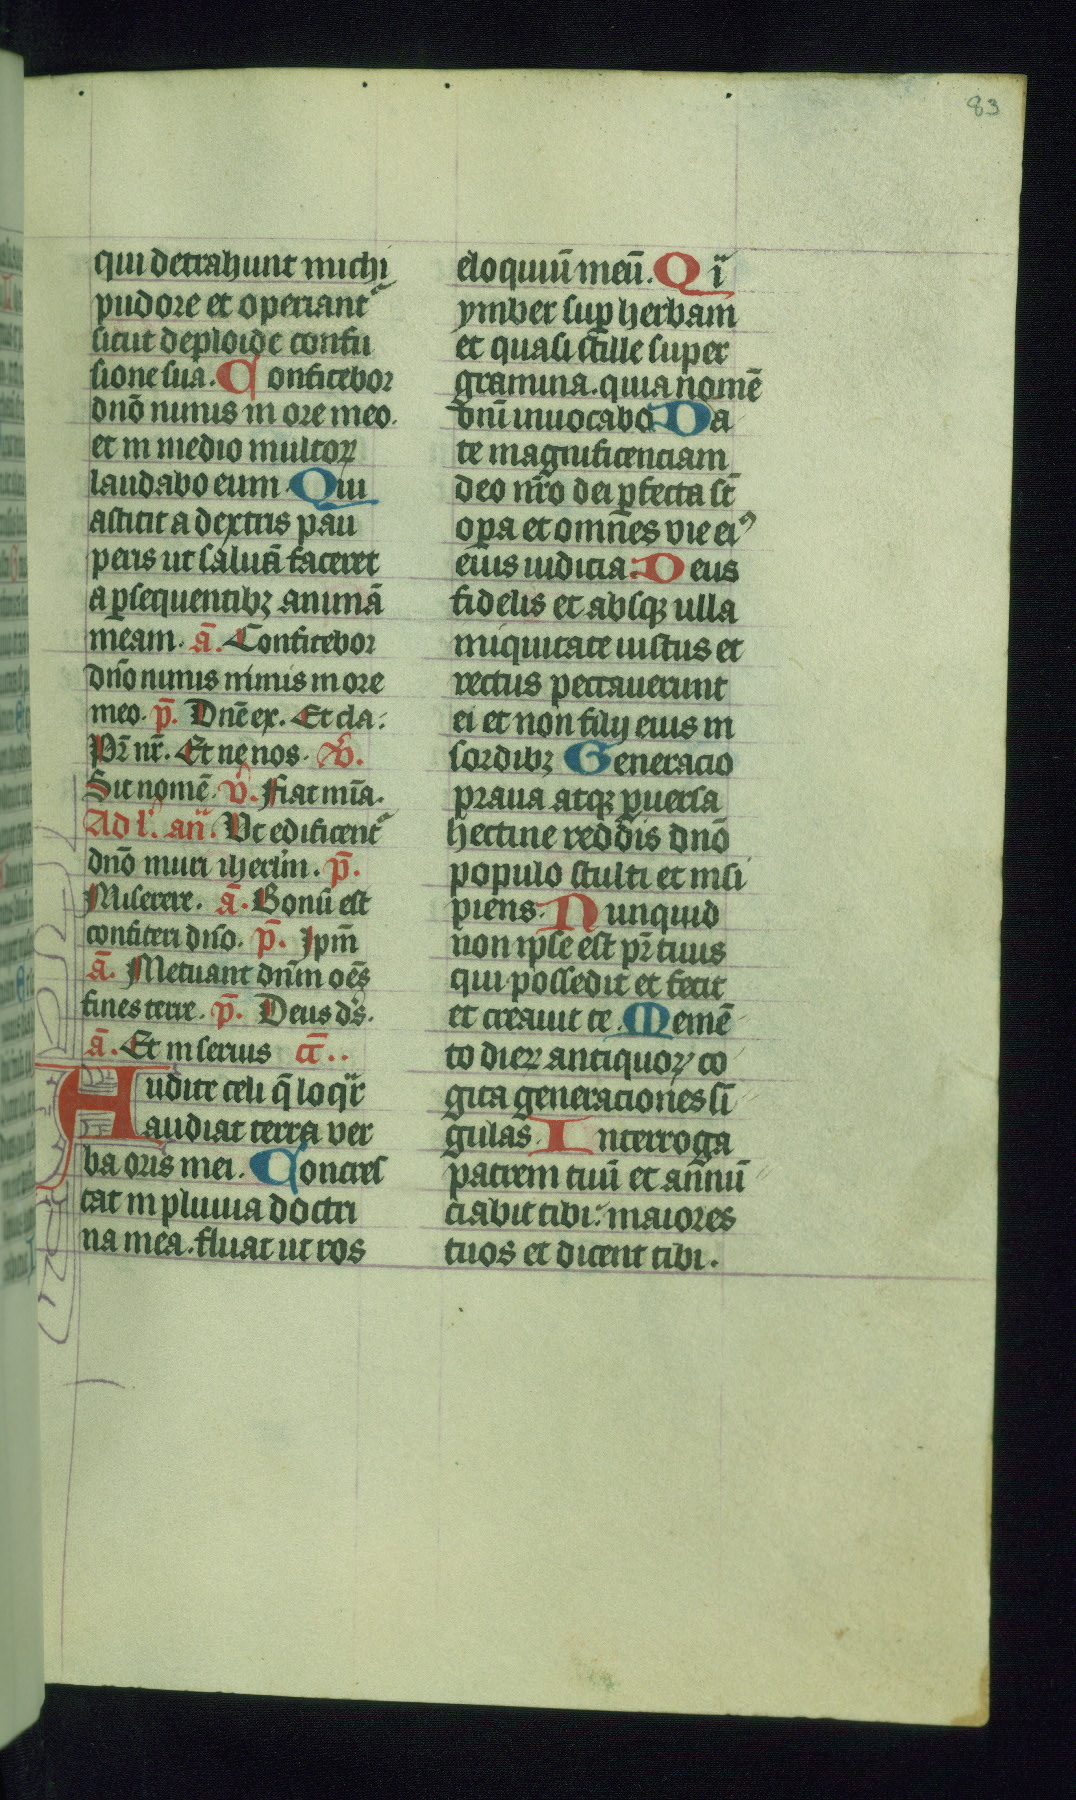 83
qui detrahunt michi
pudore et operiant᷑
sicut deploide confu
sione sua. Confitebor
dnō nimis in ore meo.
et in medio multoꝝ
laudabo eum. Qui
astitit a dextris pau
peris ut saluā faceret
a ꝑsequentibꝫ animā
meam. ā. Confitebor
dnō nimis nimis in ore
meo. p̄. Dnē ex. Et cla.
Pr̄ nr̄. Et ne nos. v̊.
Sit nomē. v̊. Fiat mīa.
Ad l'. an̄. Ut edificent᷑
dnō muri iherlm̄. p̄.
Miserere. ā. Bonū est
confiteri dnō. p̄. Ip̄m
ā. Metuant dnm̄ oēs
fines terre. p̄. Deus ds̄.
ā. Et in serius ct̄..
Audite celi q̄ loqr̄
audiat terra ver
ba oris mei. Concres
cat in pluuia doctri
na mea. fluat ut ros
eloquiū meū. Qï
ymber suꝑ herbam
et quasi stille super
gramina. quia nomē
dnī inuocabo Da
te magnificenciam
deo nr̄o dei ꝑfecta st̄
oꝑa et omn̄es vie eiꝰ
eius iudicia. Deus
fidelis et absqꝫ ulla
iniquitate iustus et
rectus peccauerunt
ei et non filij eius in
sordibꝫ Generacio
praua atqꝫ ꝑuersa
heccine reddis dnō
populo stulti et insi
piens. Nunquid
non ipse est pr̄ tuus
qui possedit et fecit
et creauit te. Memē
to dierꝫ antiquoꝝ co
gita generaciones si
gulas. Interroga
patrem tuū et an̄nū
ciabit tibi. maiores
tuos et dicent tibi.